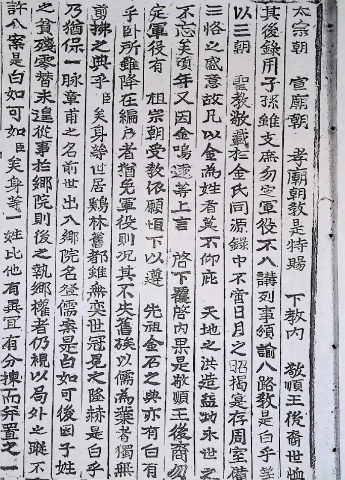 太宗朝 宣廟朝 孝廟朝教是特賜 下教内 敬順王後裔世恤
其後錄用子孫雖支庶勿定軍役不入講列事頒諭八路教是白乎等
以三朝 聖教敬載於金氏同源錄中不啻日月之昭揭宜存周室備
三恪之盛意故凡以金爲姓者莫不仰庇 天地之洪造益勁永世之
不忘矣頃年又因金鳴遠等上言 啓下覆啓内果是敬順王後裔勿
定軍役有 祖宗朝受教依願施下以遵 先祖金石之典亦有白有
乎卧所雖降在編戶者猶免軍役則况其不失舊族以儒爲業者獨無
剪拂之典乎臣矣身等世居鷄林舊都雖無奕世冠冕之隆赫是白乎
乃猶保一脉章甫之名前世出入鄕院名登儒案是白如可後因子姓
之貧殘零替未遑從事於鄕院則後之執鄕權者仍視以局外之蹤不
許入案是白如可如臣矣身等一姓比他有異宜有分揀而弁置之一